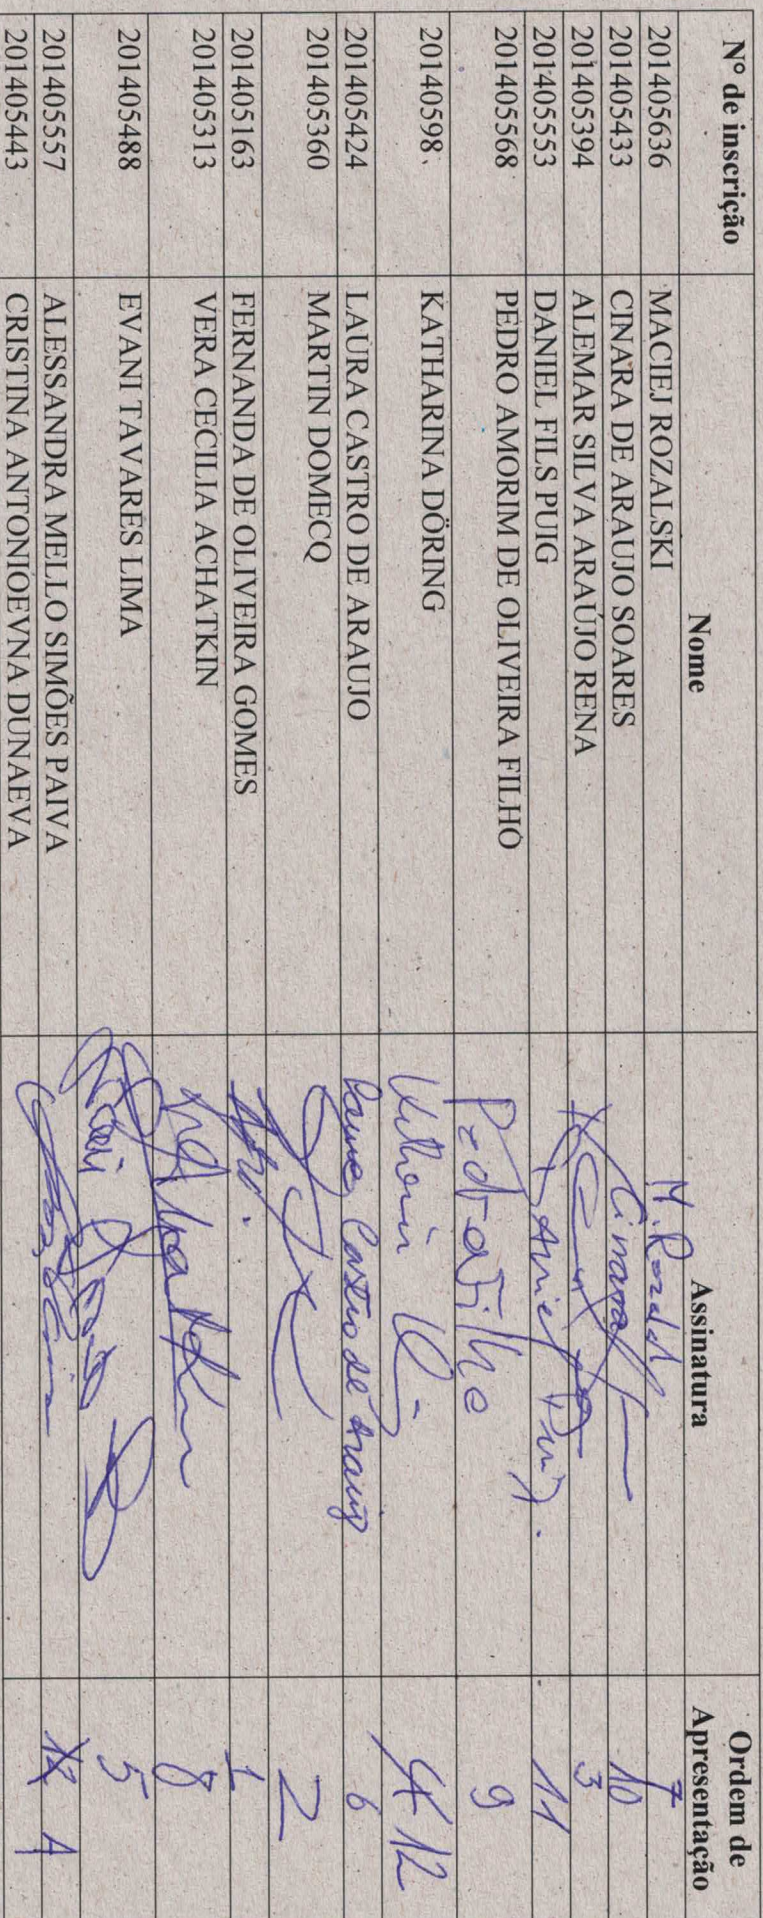 Nº de inscrição Nome Assinatura Ordem de Apresentação
201405636 MACIEJ ROZALSKI M. Rozalski 7
201405433 CINARA DE ARAUJO SOARES Cinara 10
201405394 ALEMAR SILVA ARAÚJO RENA 3
201405553 DANIEL FILS PUIG Daniel Puig. 11
201405568 PEDRO AMORIM DE OLIVEIRA FILHO Pedro Filho 9
20140598 KATHARINA DÖRING 12
201405424 LAURA CASTRO DE ARAUJO Laura Castro de Araujo 6
201405360 MARTIN DOMECQ 2
201405163 FERNANDA DE OLIVEIRA GOMES 1
201405313 VERA CECILIA ACHATKIN 8
201405488 EVANI TAVARES LIMA 5
201405557 ALESSANDRA MELLO SIMÕES PAIVA 4
201405443 CRISTINA ANTONIOEVNA DUNAEVA